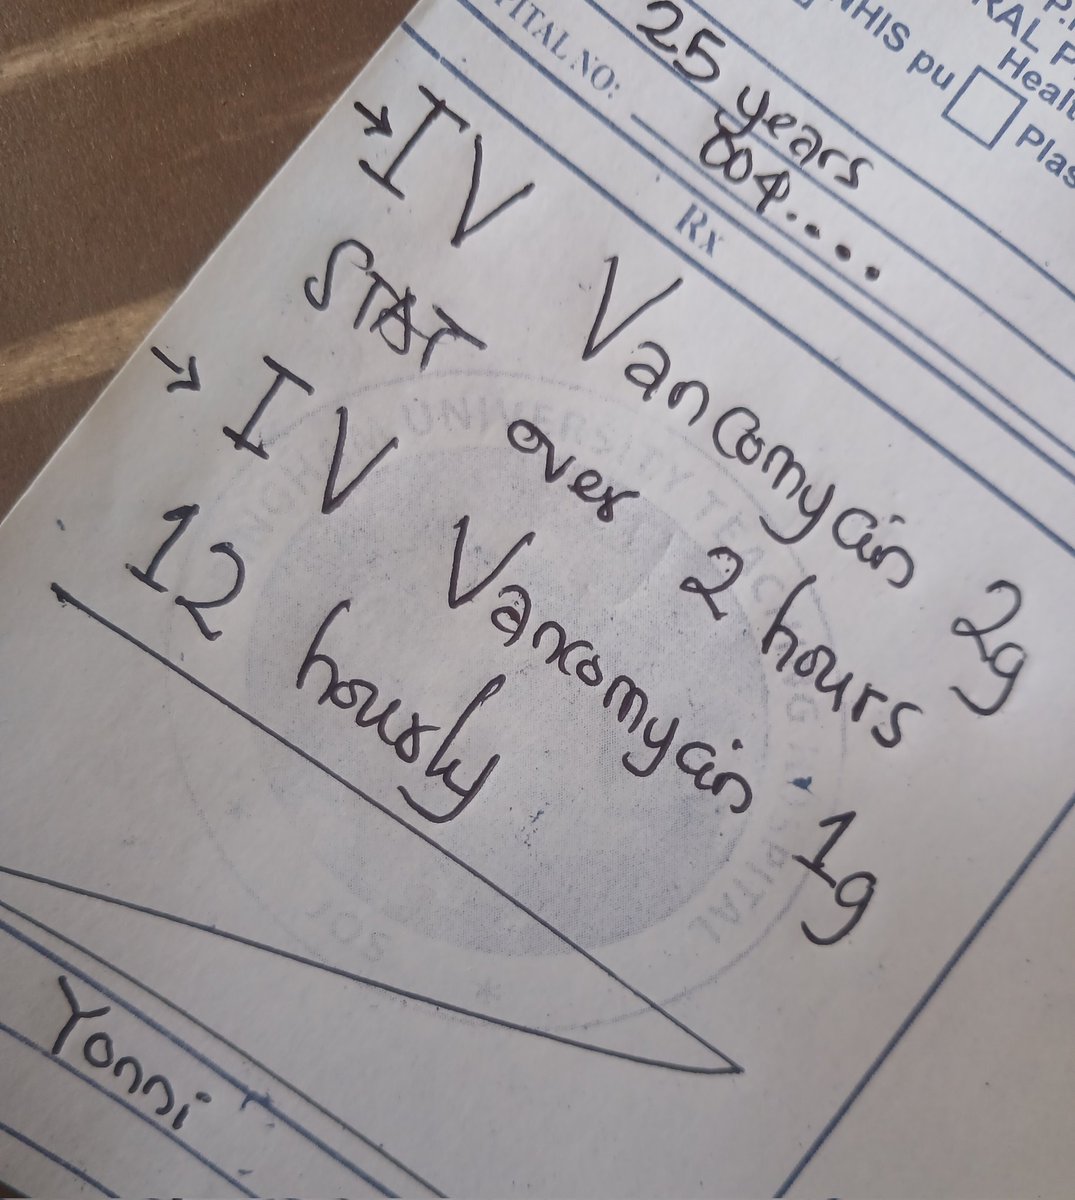 P.
RAL P
NHIS pu
Healt
Plas
25 years
PITAL NO: 004....
Rx
→ IV Vancomycin 2g
STAT over 2 hours
→ IV Vancomycin 1g
12 hourly
UNIVERSITY TEACHING HOSPITAL
JOS
Yonni